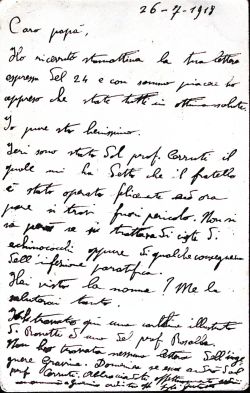 26-7-1918
Caro papà,
Ho ricevuto stamattina la tua lettera
espresso del 24 e con sommo piacere ho
appreso che state tutti in ottima salute.
Io pure sto benissimo.
Ieri sono stato dal prof. Cerruti il
quale mi ha detto che il fratello
è stato operato felicemente ed ora
pare si trovi fuori pericolo. Non si
sa però se si trattava di cisti di
echinococchi oppure di qualche conseguenza
dell'infezione paratifica.
Hai visto la nonna? Me la
saluterai tanto.
Ho trovato qui una cartolina illustrata
di Bonetti e uno del prof. Rosalba.
Non ho trovato nessuna lettera dell'ing
prof. Cerruti